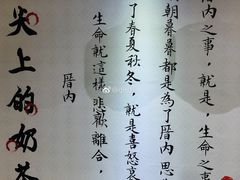 內之事，就是，生命之事
朝暮暮都是為了厝內思
了春夏秋冬，就是喜怒哀
生命就這樣悲歡離合，
厝內
尖上的奶茶